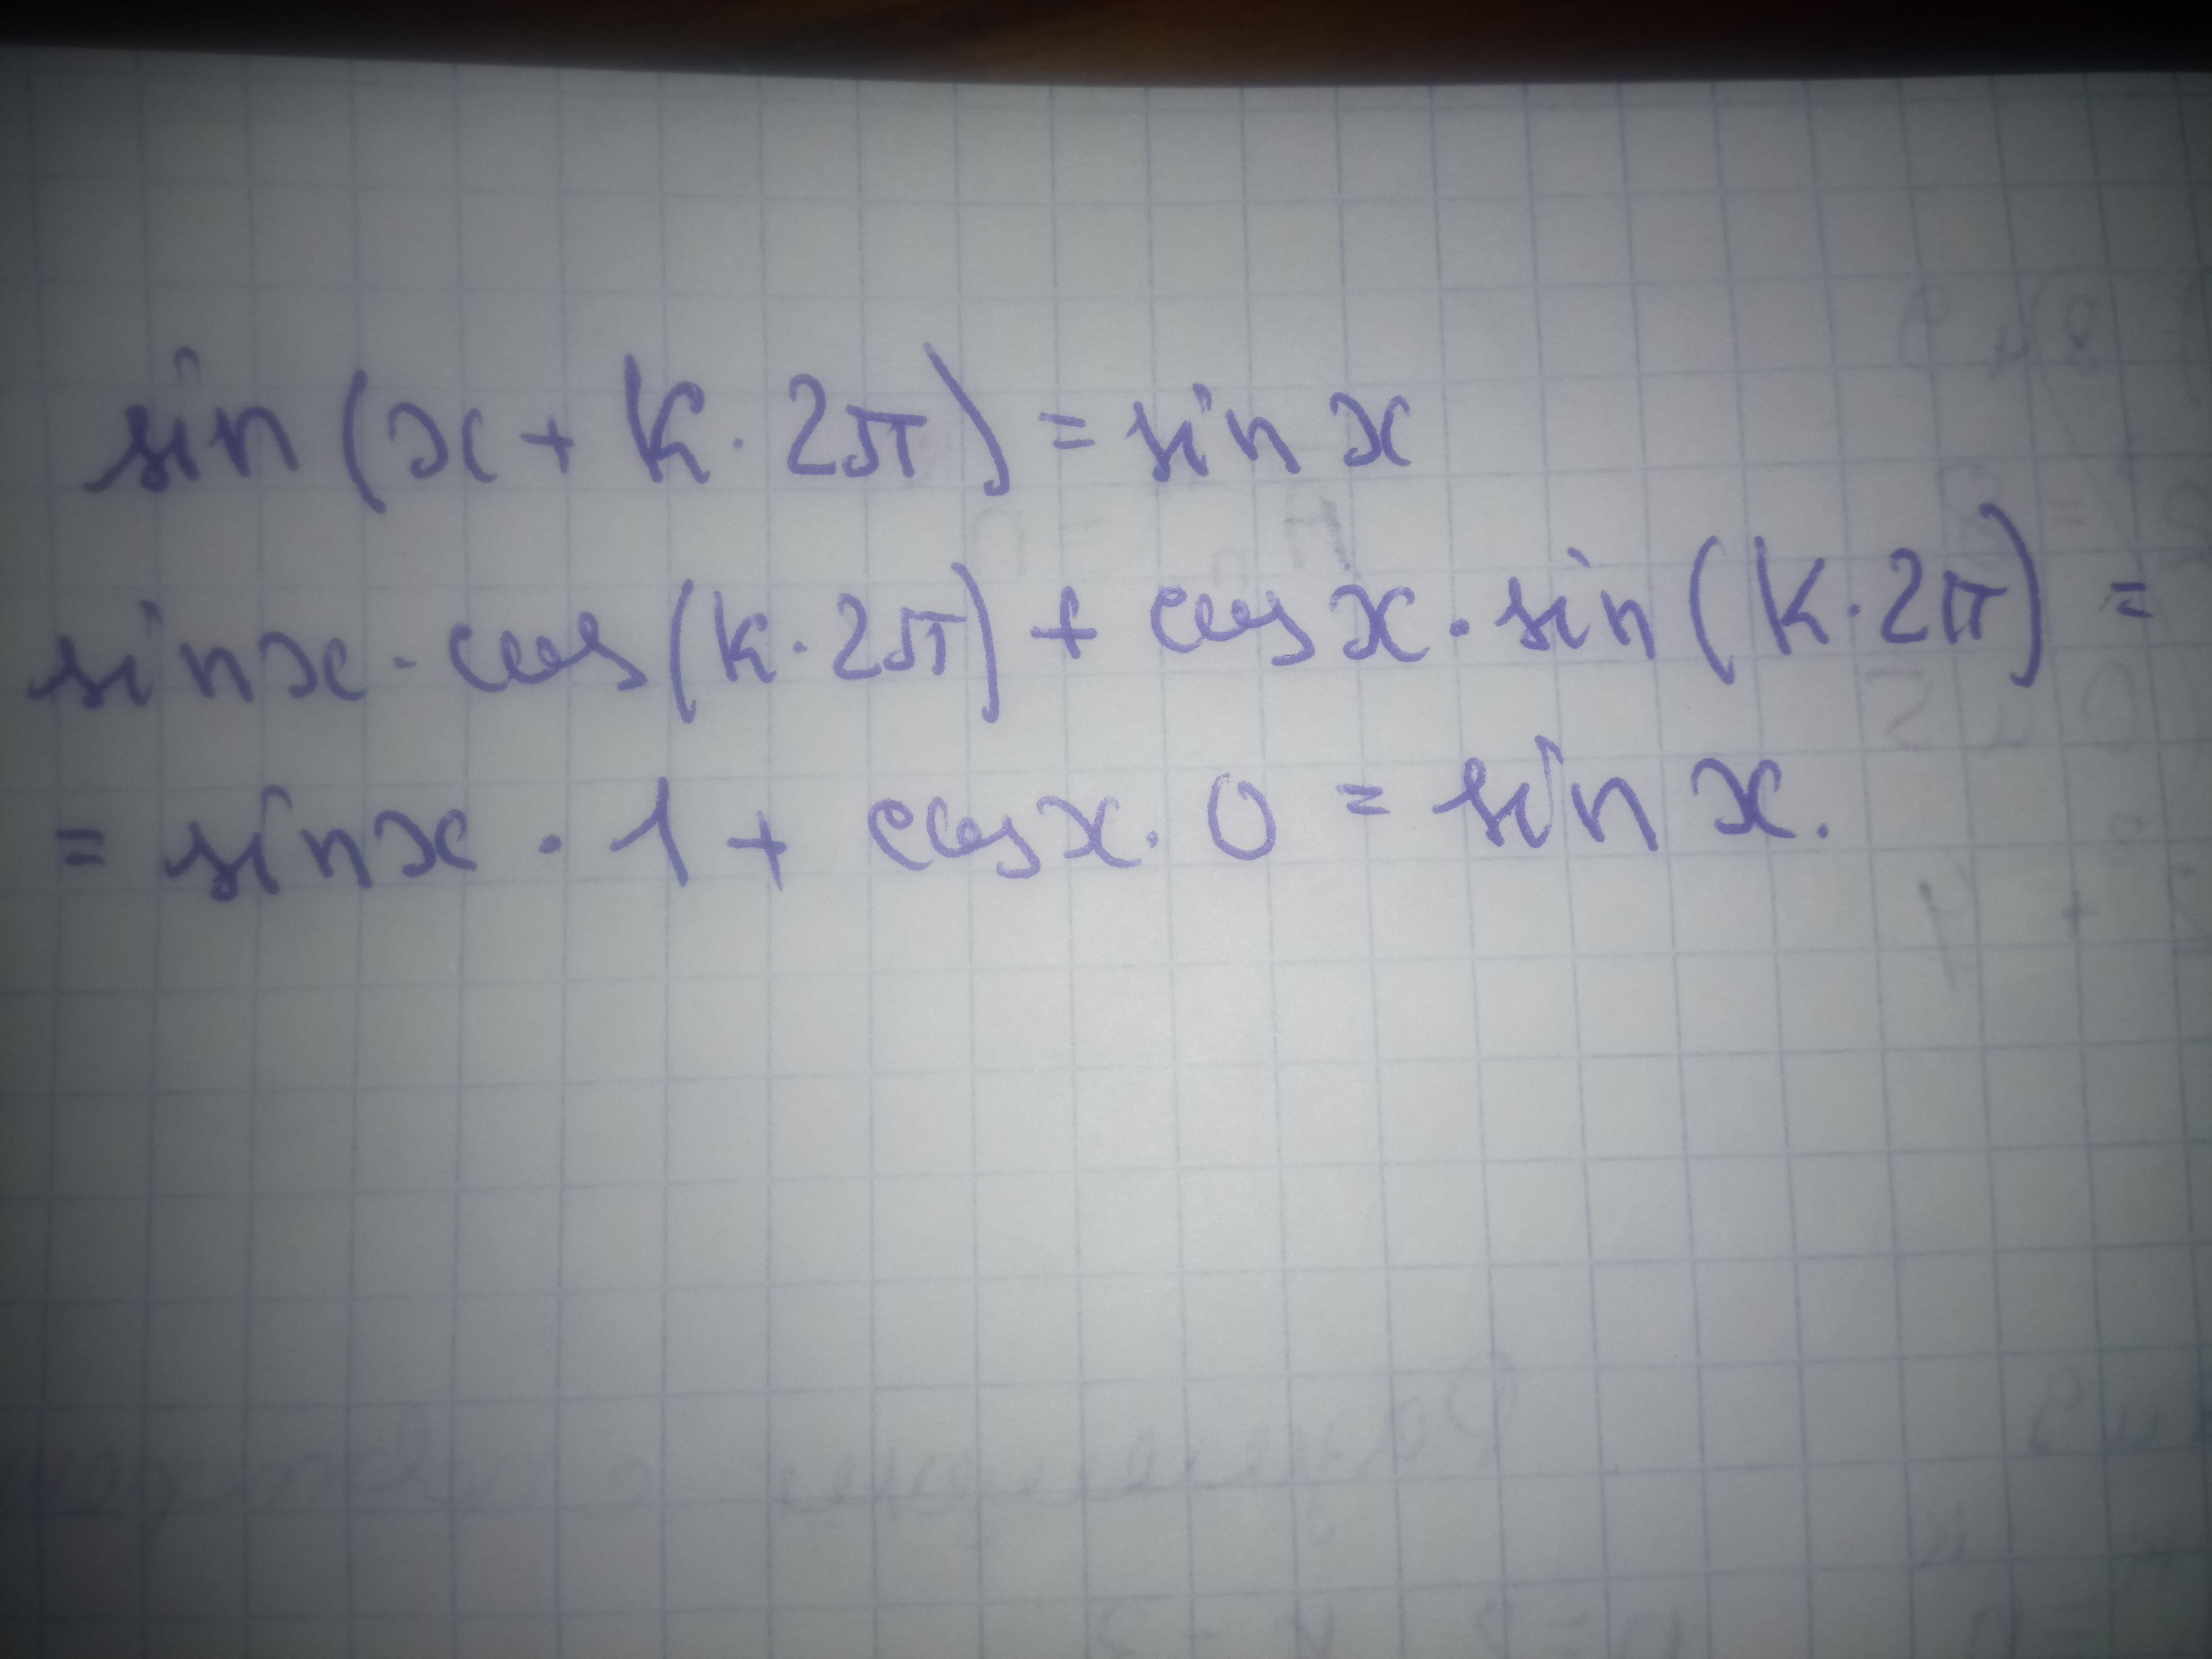 sin (x + k · 2π) = sin x
sin x · cos (k · 2π) + cos x · sin (k · 2π) =
= sin x · 1 + cos x · 0 = sin x.